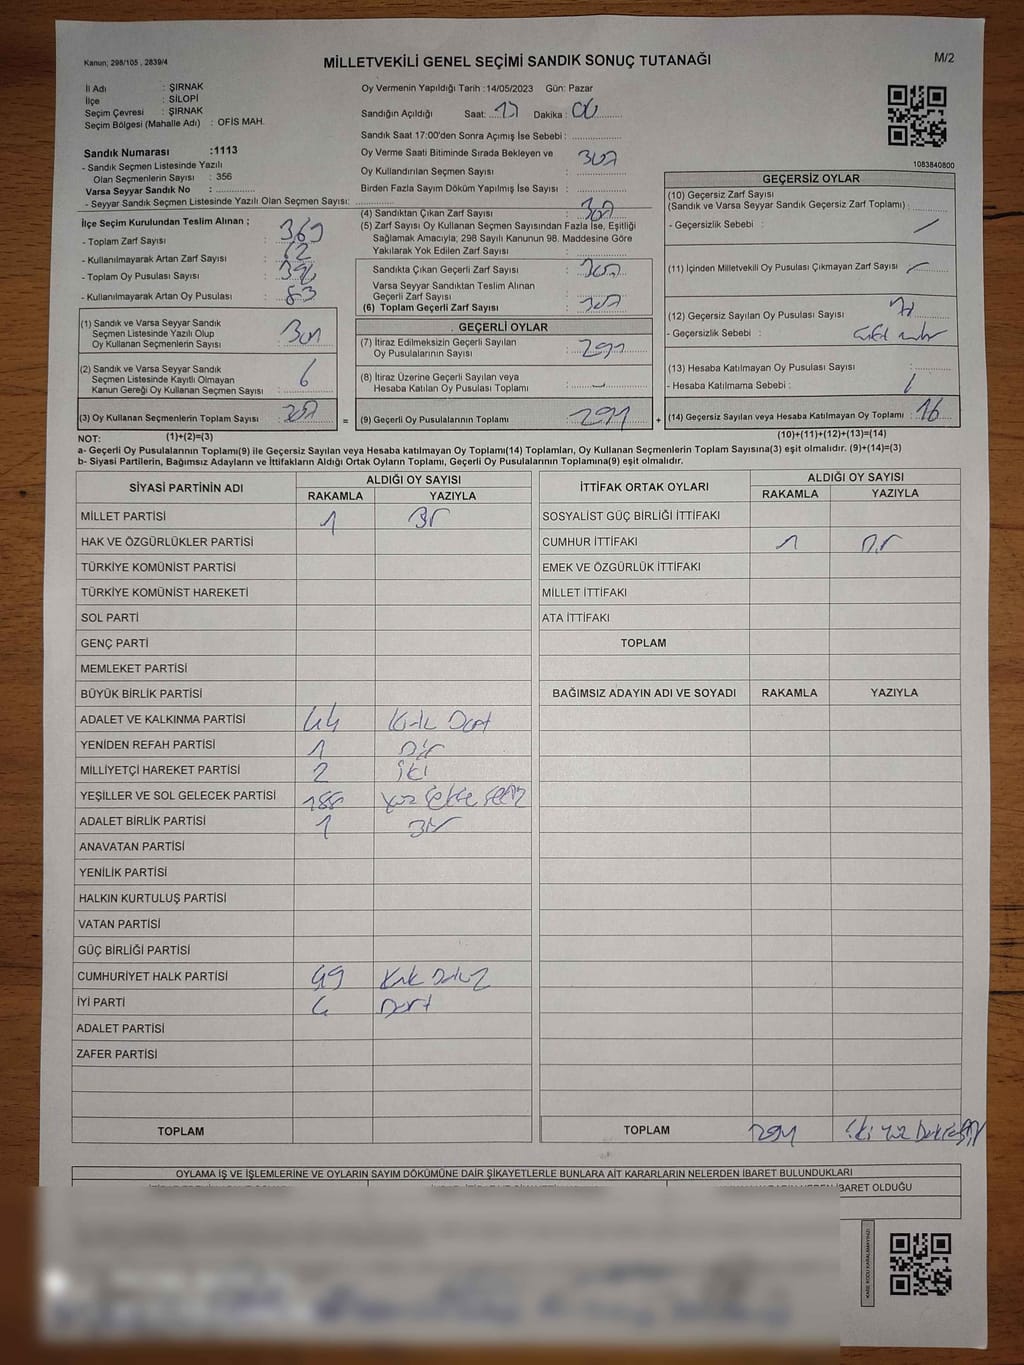 Kanun; 298/105 , 2839/4
MİLLETVEKİLİ GENEL SEÇİMİ SANDIK SONUÇ TUTANAĞI
M/2
İl Adı : ŞIRNAK
İlçe : SİLOPİ
Seçim Çevresi : ŞIRNAK
Seçim Bölgesi (Mahalle Adı) : OFİS MAH.
Sandık Numarası :1113
- Sandık Seçmen Listesinde Yazılı
Olan Seçmenlerin Sayısı : 356
Varsa Seyyar Sandık No :
- Seyyar Sandık Seçmen Listesinde Yazılı Olan Seçmen Sayısı:
Oy Vermenin Yapıldığı Tarih :14/05/2023 Gün: Pazar
Sandığın Açıldığı Saat: 17 Dakika : 00
Sandık Saat 17:00'den Sonra Açımış İse Sebebi :
Oy Verme Saati Bitiminde Sırada Bekleyen ve
Oy Kullandırılan Seçmen Sayısı : 307
Birden Fazla Sayım Döküm Yapılmış İse Sayısı :
1083840800
İlçe Seçim Kurulundan Teslim Alınan ;
- Toplam Zarf Sayısı : 369
- Kullanılmayarak Artan Zarf Sayısı : 62
- Toplam Oy Pusulası Sayısı :
- Kullanılmayarak Artan Oy Pusulası : 83
(1) Sandık ve Varsa Seyyar Sandık
Seçmen Listesinde Yazılı Olup
Oy Kullanan Seçmenlerin Sayısı : 301
(2) Sandık ve Varsa Seyyar Sandık
Seçmen Listesinde Kayıtlı Olmayan
Kanun Gereği Oy Kullanan Seçmen Sayısı : 6
(3) Oy Kullanan Seçmenlerin Toplam Sayısı : 307
(4) Sandıktan Çıkan Zarf Sayısı : 307
(5) Zarf Sayısı Oy Kullanan Seçmen Sayısından Fazla İse, Eşitliği
Sağlamak Amacıyla; 298 Sayılı Kanunun 98. Maddesine Göre
Yakılarak Yok Edilen Zarf Sayısı :
Sandıkta Çıkan Geçerli Zarf Sayısı : 307
Varsa Seyyar Sandıktan Teslim Alınan
Geçerli Zarf Sayısı :
(6) Toplam Geçerli Zarf Sayısı : 307
GEÇERLİ OYLAR
(7) İtiraz Edilmeksizin Geçerli Sayılan
Oy Pusulalarının Sayısı : 291
(8) İtiraz Üzerine Geçerli Sayılan veya
Hesaba Katılan Oy Pusulası Toplamı : -
= (9) Geçerli Oy Pusulalarının Toplamı : 291 +
GEÇERSİZ OYLAR
(10) Geçersiz Zarf Sayısı
(Sandık ve Varsa Seyyar Sandık Geçersiz Zarf Toplamı) :
- Geçersizlik Sebebi : /
(11) İçinden Milletvekili Oy Pusulası Çıkmayan Zarf Sayısı :
(12) Geçersiz Sayılan Oy Pusulası Sayısı :
- Geçersizlik Sebebi :
(13) Hesaba Katılmayan Oy Pusulası Sayısı :
- Hesaba Katılmama Sebebi : /
(14) Geçersiz Sayılan veya Hesaba Katılmayan Oy Toplamı : 16
NOT: (1)+(2)=(3)
(10)+(11)+(12)+(13)=(14)
a- Geçerli Oy Pusulalarının Toplamı(9) ile Geçersiz Sayılan veya Hesaba katılmayan Oy Toplamı(14) Toplamları, Oy Kullanan Seçmenlerin Toplam Sayısına(3) eşit olmalıdır. (9)+(14)=(3)
b- Siyasi Partilerin, Bağımsız Adayların ve İttifakların Aldığı Ortak Oyların Toplamı, Geçerli Oy Pusulalarının Toplamına(9) eşit olmalıdır.
SİYASİ PARTİNİN ADI
ALDIĞI OY SAYISI
RAKAMLA YAZIYLA
MİLLET PARTİSİ 1 Bir
HAK VE ÖZGÜRLÜKLER PARTİSİ
TÜRKİYE KOMÜNİST PARTİSİ
TÜRKİYE KOMÜNİST HAREKETİ
SOL PARTİ
GENÇ PARTİ
MEMLEKET PARTİSİ
BÜYÜK BİRLİK PARTİSİ
ADALET VE KALKINMA PARTİSİ 44 Kırk Dört
YENİDEN REFAH PARTİSİ 1 Bir
MİLLİYETÇİ HAREKET PARTİSİ 2 iki
YEŞİLLER VE SOL GELECEK PARTİSİ 188 yüz seksen sekiz
ADALET BİRLİK PARTİSİ 1 Bir
ANAVATAN PARTİSİ
YENİLİK PARTİSİ
HALKIN KURTULUŞ PARTİSİ
VATAN PARTİSİ
GÜÇ BİRLİĞİ PARTİSİ
CUMHURİYET HALK PARTİSİ 49 Kırk Dokuz
İYİ PARTİ 4 Dört
ADALET PARTİSİ
ZAFER PARTİSİ
TOPLAM
İTTİFAK ORTAK OYLARI
ALDIĞI OY SAYISI
RAKAMLA YAZIYLA
SOSYALİST GÜÇ BİRLİĞİ İTTİFAKI
CUMHUR İTTİFAKI 1 Bir
EMEK VE ÖZGÜRLÜK İTTİFAKI
MİLLET İTTİFAKI
ATA İTTİFAKI
TOPLAM
BAĞIMSIZ ADAYIN ADI VE SOYADI RAKAMLA YAZIYLA
TOPLAM 291 iki yüz Doksan bir
OYLAMA İŞ VE İŞLEMLERİNE VE OYLARIN SAYIM DÖKÜMÜNE DAİR ŞİKAYETLERLE BUNLARA AİT KARARLARIN NELERDEN İBARET BULUNDUKLARI
İBARET OLDUĞU